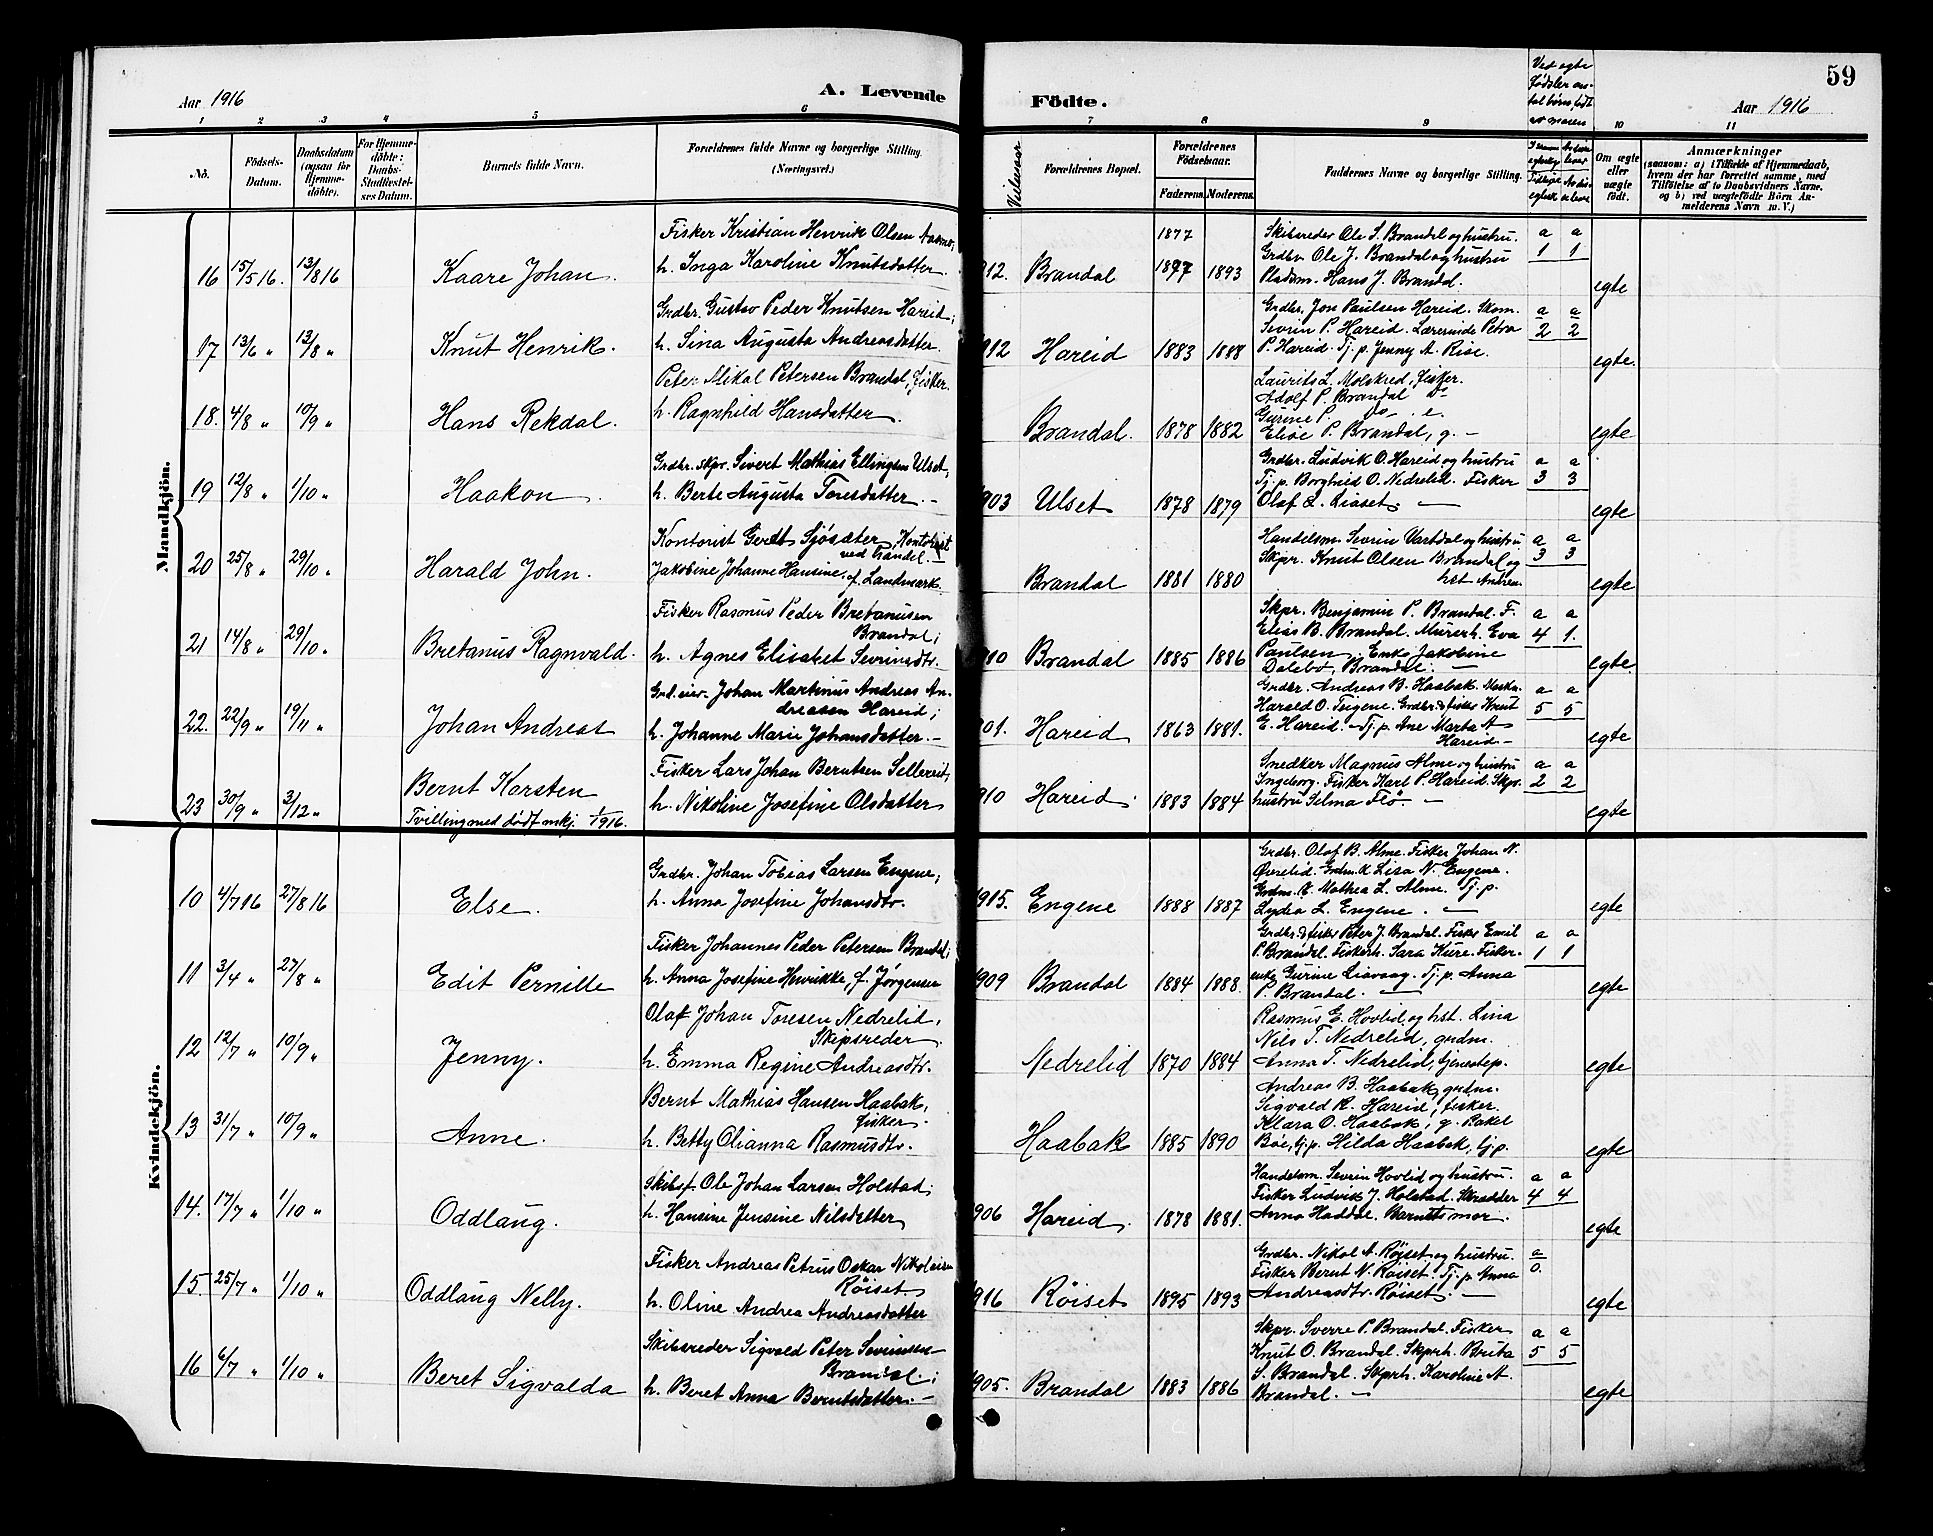 Aar 1916
A. Levende
Födte.
Aar 1916
59
Ved egte
Fødsler an-
tal børn, født
av moren
1 2 3 4 5 6 7 8 9 10 11
No.
Födsels-
Datum.
Daabsdatum
(ogsaa for
Hjemme-
döbte).
For Hjemme-
döbte:
Daabs-
Stadfæstel-
ses Datum.
Barnets fulde Navn.
Forældrenes fulde Navne og borgerlige Stilling.
(Næringsvei.)
Vielsesaar
Forældrenes Bopæl.
Forældrenes
Födselsaar.
Faderens. Moderens.
Faddernes Navne og borgerlige Stilling.
Om ægte
eller
uægte
födt.
Anmærkninger
(saasom: a) i Tilfælde af Hjemmedaab,
hvem der har forrettet samme, med
Tilföielse af to Daabsvidners Navne.
og b) ved uægtefödte Börn An-
melderens Navn m. V.)
Mandkjön.
Fisker Kristian Henrik Olsen
16 15/5 16. 13/8 16 Kaare Johan. h. Inga Karoline Knutsdatter
912. Brandal 1877 1877 1893
Skibsreder Ole S. Brandal og hustru.
Grdbr Ole J. Brandal og hustru
Pladsm. Hans J. Brandal.
a a
1 1
egte
Grdbr. Gustav Peder Knutsen Hareid;
17 13/6 " 13/8 " Knut Henrik. h. Sina Augusta Andreasdatter.
912 Hareid 1883 1888
Grdbr. Jon Paulsen Hareid. Skom.
Sevrin P. Hareid. Lærerinde Petra
P. Hareid. Tj. p. Jenny A. Rise.
a a
2 2
egte.
Peter Mikal Petersen Brandal, fisker.
18. 4/8 " 10/9 " Hans Rekdal. h. Ragnhild Hansdatter.
Brandal. 1878 1882
Laurits L. Molskred, fisker.
Adolf P. Brandal Do
Gurine P. do e.
Elise P. Brandal, g. —
egte
Grdbr. skpr. Sivert Mathias Ellingsen Ulset,
19 12/8 " 1/10 " Haakon. h. Berte Augusta Toresdatter. —
903 Ulset 1878 1879
Grdbr. Ludvik O. Hareid og hustru
Tj. p. Borghild O. Nedrelid. Fisker
Olaf L. Liaset. —
a a
3 3
egte
Kontorist Gerdt Sjösæter, Kontorist
ved handel. —
20 25/8 " 29/10 " Harald John. Jakobine Johanne Hansine, f. Landmark.
Brandal 1881 1880
Handelsm. Sevrin Vartdal og hustru
Skpr. Knut Olsen Brandal og
hst Andrea.
a a
3 3
egte
Fisker Rasmus Peder Bretanusen
Brandal;
21 14/8 " 29/10 " Bretanus Ragnvald. h. Agnes Elisabet Sevrinsdtr.
910 Brandal 1885 1886
Skpr. Benjamin P. Brandal. F.
Elias B. Brandal. Murerh. Eva
Paulsen. Enke Jakobine
Dalebø Brandal. —
a a
4 1.
egte.
Grd.eier. Johan Martinus Andreas An-
dreasen Hareid;
22. 22/9 " 19/11 " Johan Andreas h. Johanne Marie Johansdatter. —
901. Hareid 1863 1881.
Grdbr. Andreas B. Haabak. Maskn.
Harald O. Eugene. Grdbr. & fisker Knut
E. Hareid. Tj. p. Ane Marta A
Hareid —
a a
5 5
egte
Fisker Lars Johan Berntsen Sellereit,
23 30/9 " 3/12 " Bernt Karsten h. Nikoline Josefine Olsdatter
Tvilling med dødf. mkj. 1/1916.
910 Hareid. 1883 1884
Snedker Magnus Alme og hustru
Ingeborg. Fisker Karl P. Hareid. Skpr.
hustru Selma Flö —
a a
2 2
egte
Kvindekjön.
Grdbr. Johan Tobias Larsen Engene,
10 4/7 16 27/8 16 Else. h. Anna Josefine Johansdtr.
915. Engene 1888 1887
Grdbr. Olaf B. Alme. Fisker Johan N.
Øverelid. Grdm.k Lisa N. Engene.
Grdm. k. Mathea L. Alme. Tj. p.
Lydia L. Engene. —
egte
Fisker Johannes Peder Petersen Brandal;
11 3/4 " 27/8 " Edit Pernille h. Anna Josefine Henrikke, f. Jørgensen
909 Brandal 1884 1888.
Grdbr & fisker Peter J. Brandal. Fisker Emil
P. Brandal. Fiskerh. Sara Kure. Fisker-
enke Gurine Liavaag. Tj. p. Anna
P. Brandal. —
a a
1 1
egte
Olaf Johan Toresen Nedrelid,
Skipsreder.
12 12/7 " 10/9 " Jenny. h. Emma Regine Andreasdtr.
Nedrelid 1870 1884
Rasmus E. Hovlid og hst. Lina
Nils T. Nedrelid, grdm.
Anna T. Nedrelid, tjenestep.
egte
Bernt Mathias Hansen Haabak,
fisker.
13 31/7 " 10/9 " Anne. h. Betty Olianna Rasmusdtr.
Haabak 1885 1890
Andreas B. Haabak, grdm.
Sigvald R. Hareid, fisker.
Klara O. Haabak, g. Rakel
Bøe, tj.p. Hilda Haabak, tj.p.
egte
Skibsf. Ole Johan Larsen Holstad;
14. 17/7 " 1/10 " Oddlaug. h. Hansine Jensine Nilsdatter
906 Hareid. 1878 1881.
Handelsm. Sevrin Hovlid og hustru.
Fisker Ludvik J. Holstad. Skrædder
Anna Haddal. Barnets mor.
a a
4 4
egte
Fisker Andreas Petrus Oskar Nikolaisen
Røiset
15. 25/7 " 1/10 " Oddlaug Nelly. h. Oline Andrea Andreasdatter
916 Røiset 1895 1893
Grdbr. Nikol A. Røiset og hustru.
Fisker Bernt N. Røiset. Tj. p. Anna
Andreasdtr. Røiset. —
a
0.
egte
Skibsreder Sigvald Peter Sevrinsen
Brandal.;
16 6/7 " 1/10 " Beret Sigvalda h. Beret Anna Berntsdatter. —
905. Brandal 1883 1886
Skpr. Sverre P. Brandal. Fisker
Knut O. Brandal. Skprh. Brita
S. Brandal. Skprh. Karoline A.
Brandal. —
a a
5 5
egte